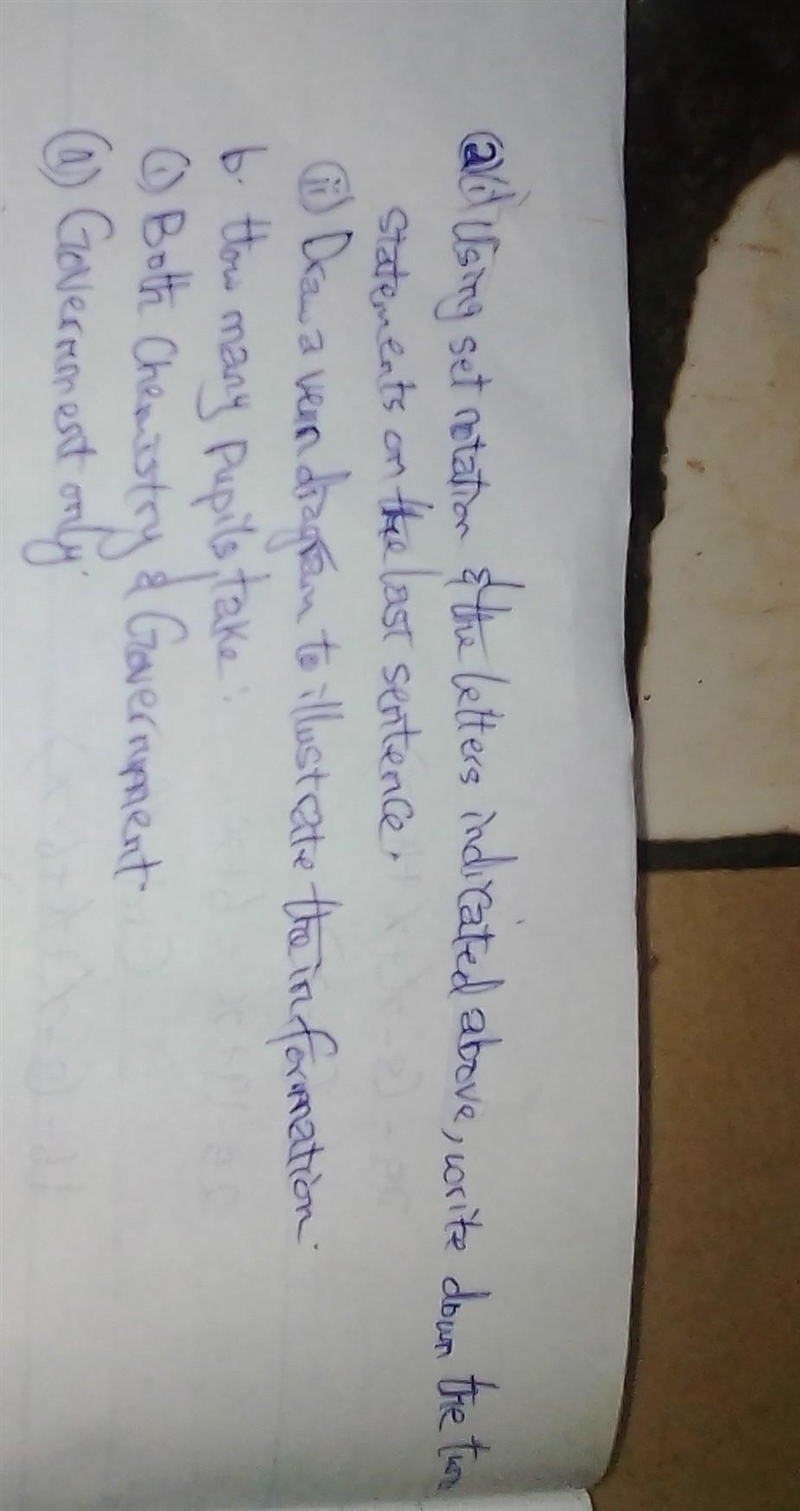 (a)(i) Using set notation & the letters indicated above, write down the two
statements on the last sentence.
(ii) Draw a venn diagram to illustrate the information.
b. How many Pupils take:
(i) Both Chemistry & Government.
(ii) Government only.